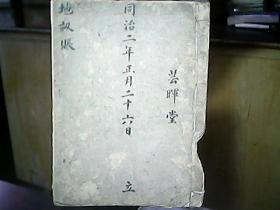 芸暉堂
同治二年正月二十六日 立
地畝賬